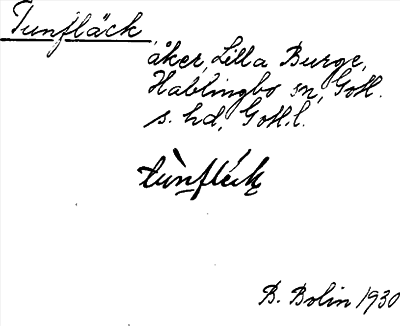 Tunfläck
åker, Lilla Burge,
Hablingbo sn, Gotl.
s. hd, Gotl. l.
tùnfléck
B. Bolin 1930